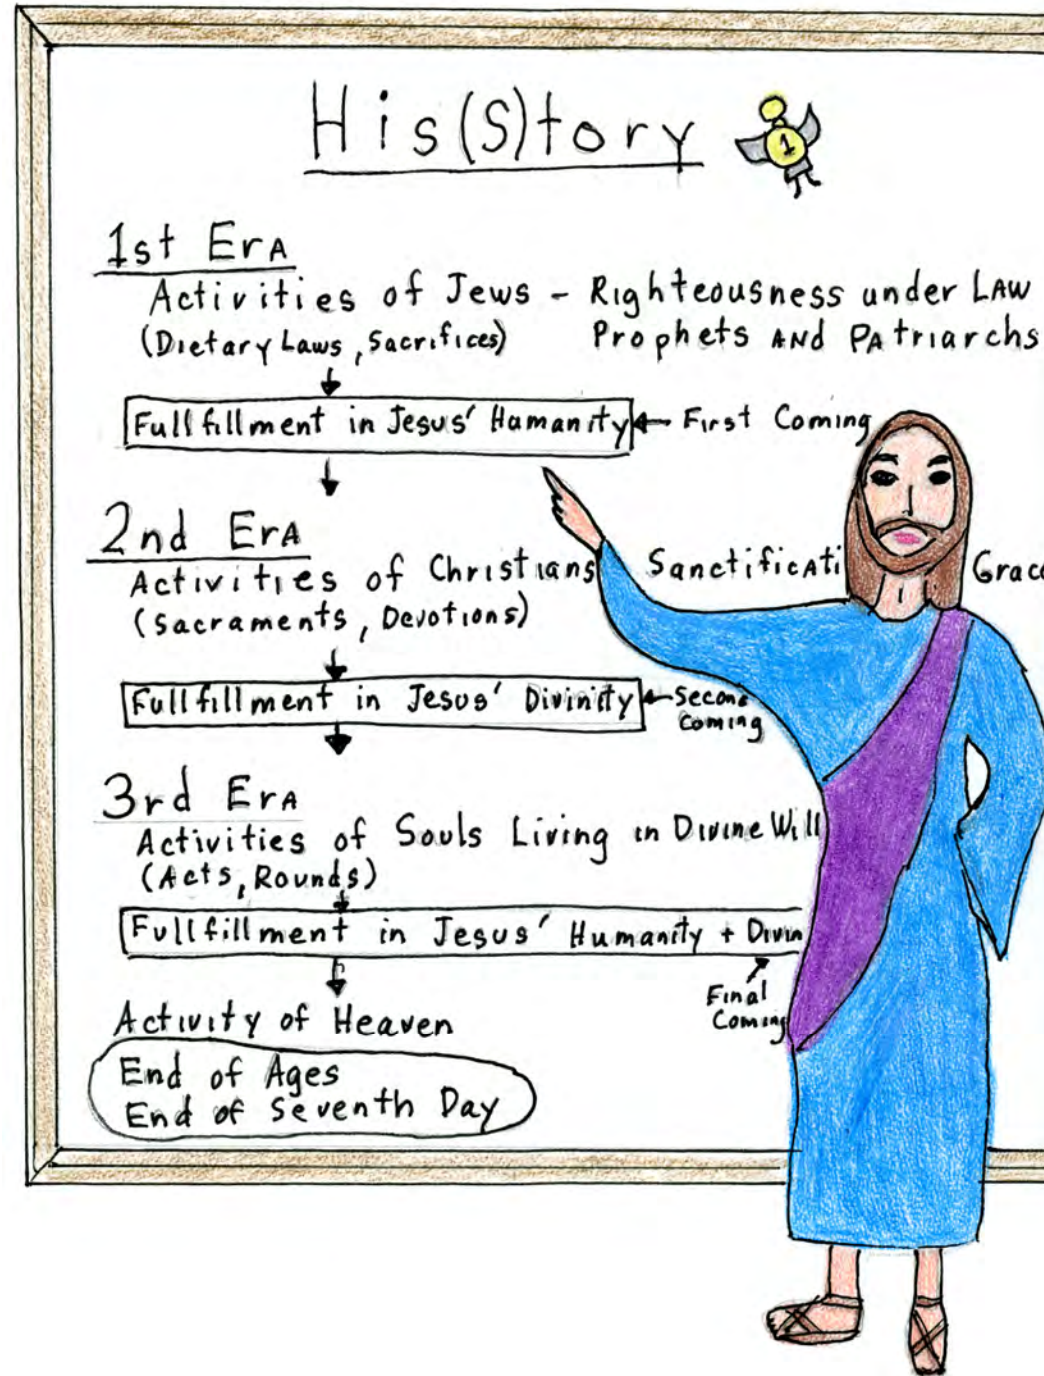 His(S)tory
1
1st Era
Activities of Jews - Righteousness under Law
(Dietary Laws, Sacrifices) Prophets and Patriarchs
Fullfillment in Jesus' Humanity ← First Coming
2nd Era
Activities of Christians Sanctificati Grac
(Sacraments, Devotions)
Fullfillment in Jesus' Divinity ← Second
Coming
3rd Era
Activities of Souls Living in Divine Will
(Acts, Rounds)
Fullfillment in Jesus' Humanity + Divin
Final
Coming
Activity of Heaven
End of Ages
End of Seventh Day